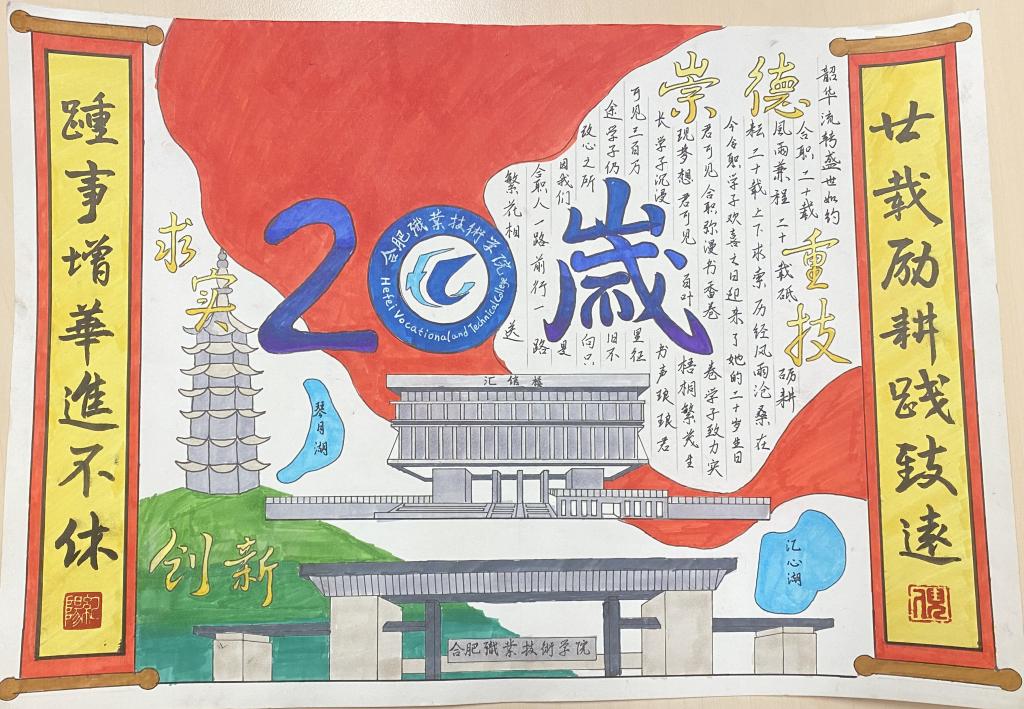 廿载励耕践致遠
韶华流转盛世如约
合职二十载
風雨兼程 二十载砥 砺耕
耘二十载上下求索历经风雨沧桑在
今合职学子欢喜之日 来了她的二十岁生日
君可见合职弥漫书香卷 卷学子致力实
现梦想 君可见 百叶 梧桐繁茂生
长学子沉浸 书声琅琅君
可见三百万 里征
途学子仍 旧不
改心之所 向只
因我们 是
合职人一路前行一 路
繁花相 送
崇德
重技
求实
创新
20歲
合肥職業技術学院
Hefei Vocational and Technical College
汇信楼
琴月湖
汇心湖
合肥職業技術学院
踵事增華進不休